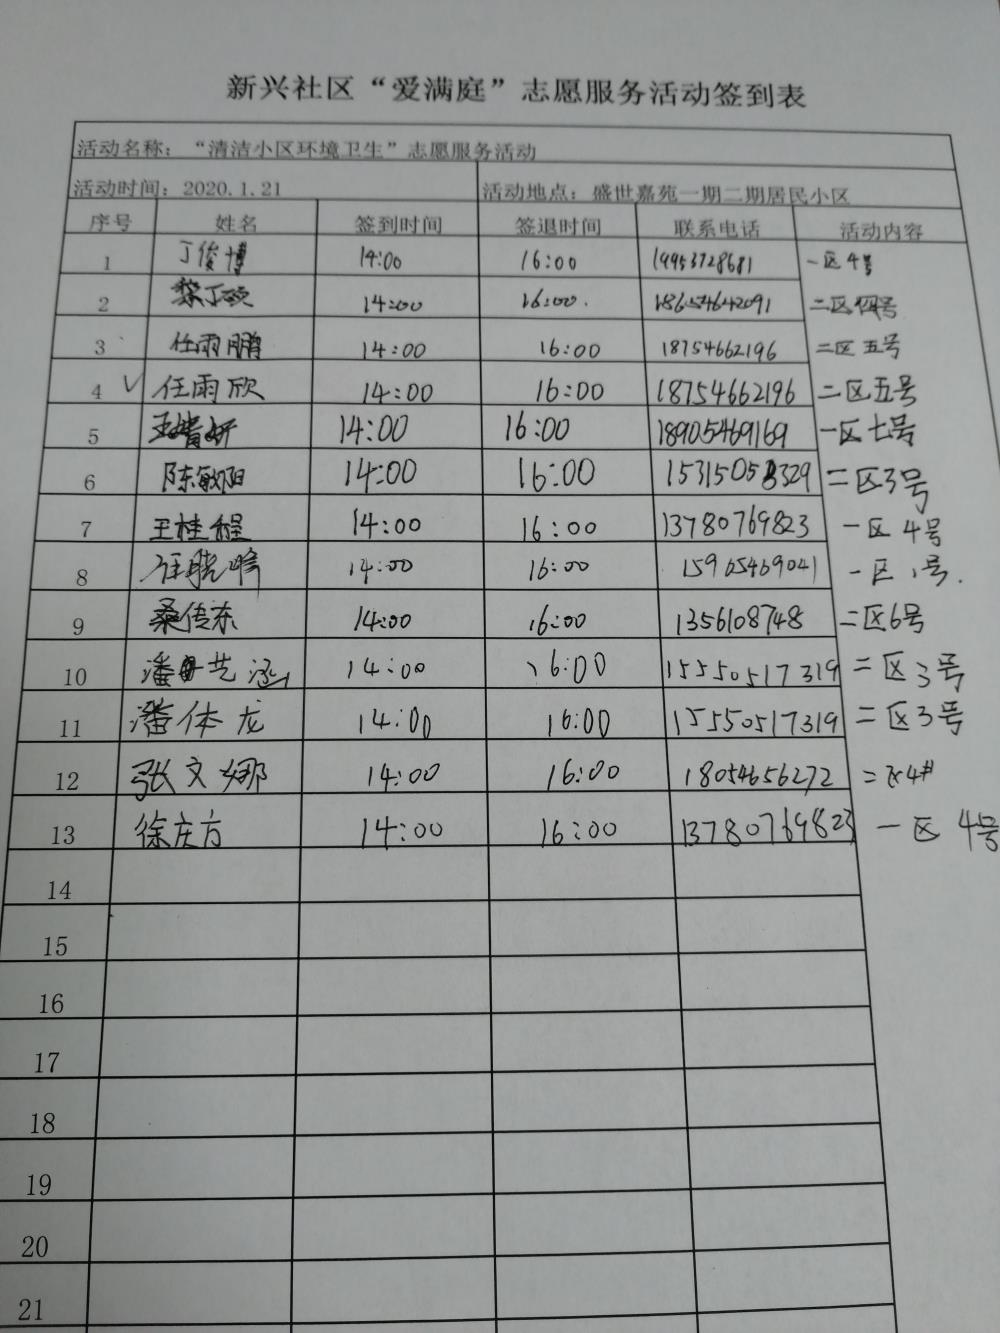 新兴社区“爱满庭”志愿服务活动签到表
活动名称：“清洁小区环境卫生”志愿服务活动
活动时间：2020.1.21 活动地点：盛世嘉苑一期二期居民小区
序号 姓名 签到时间 签退时间 联系电话 活动内容
1 丁俊博 14:00 16:00 19953728681 一区4号
2 14:00 16:00. 18654642091 二区四号
3 任雨鹏 14:00 16:00 18754662196 二区五号
4 √ 任雨欣 14:00 16:00 18754662196 二区五号
5 14:00 16:00 18905469169 一区七号
6 陈敏阳 14:00 16:00 15315058329 二区3号
7 王桂程 14:00 16:00 13780769823 一区4号
8 14:00 16:00 15965469041 一区1号.
9 桑传东 14:00 16:00 1356108748 二区6号
10 潘艺涵 14:00 16:00 15550517319 二区3号
11 潘体龙 14:00 16:00 15550517319 二区3号
12 张文娜 14:00 16:00 18054656272 二区4#
13 徐庆方 14:00 16:00 13780769823 一区4号
14
15
16
17
18
19
20
21